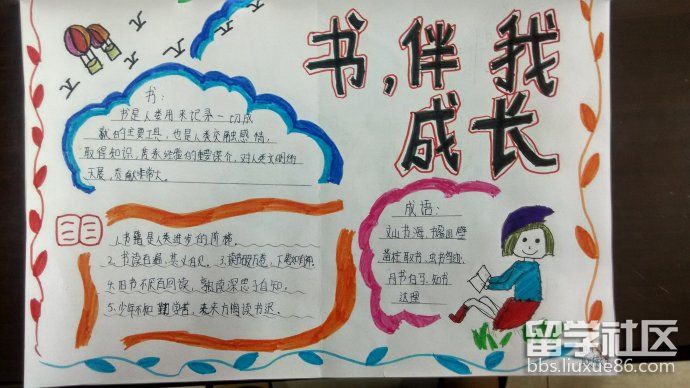 书，伴我
成长
书：
书是人类用来记录一切成
就的主要工具，也是人类交融感情，
取得知识，传承经验的重要媒介，对人类文明的
开展，贡献
书籍是人类进步的阶梯。
2.书读百遍，其义自见。3.读书破万卷，下笔如有神。
4.旧书不厌百回读，熟读深思子自知。
5.少年不知勤学者，
读书迟。
成语：
书海，
取书，
丹书白马，知书
达理
留学社区
bbs.liuxue86.com